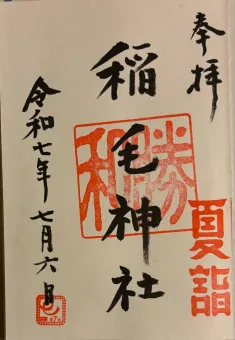 奉拝
夏詣
稲毛神社
勝和
令和七年七月六日